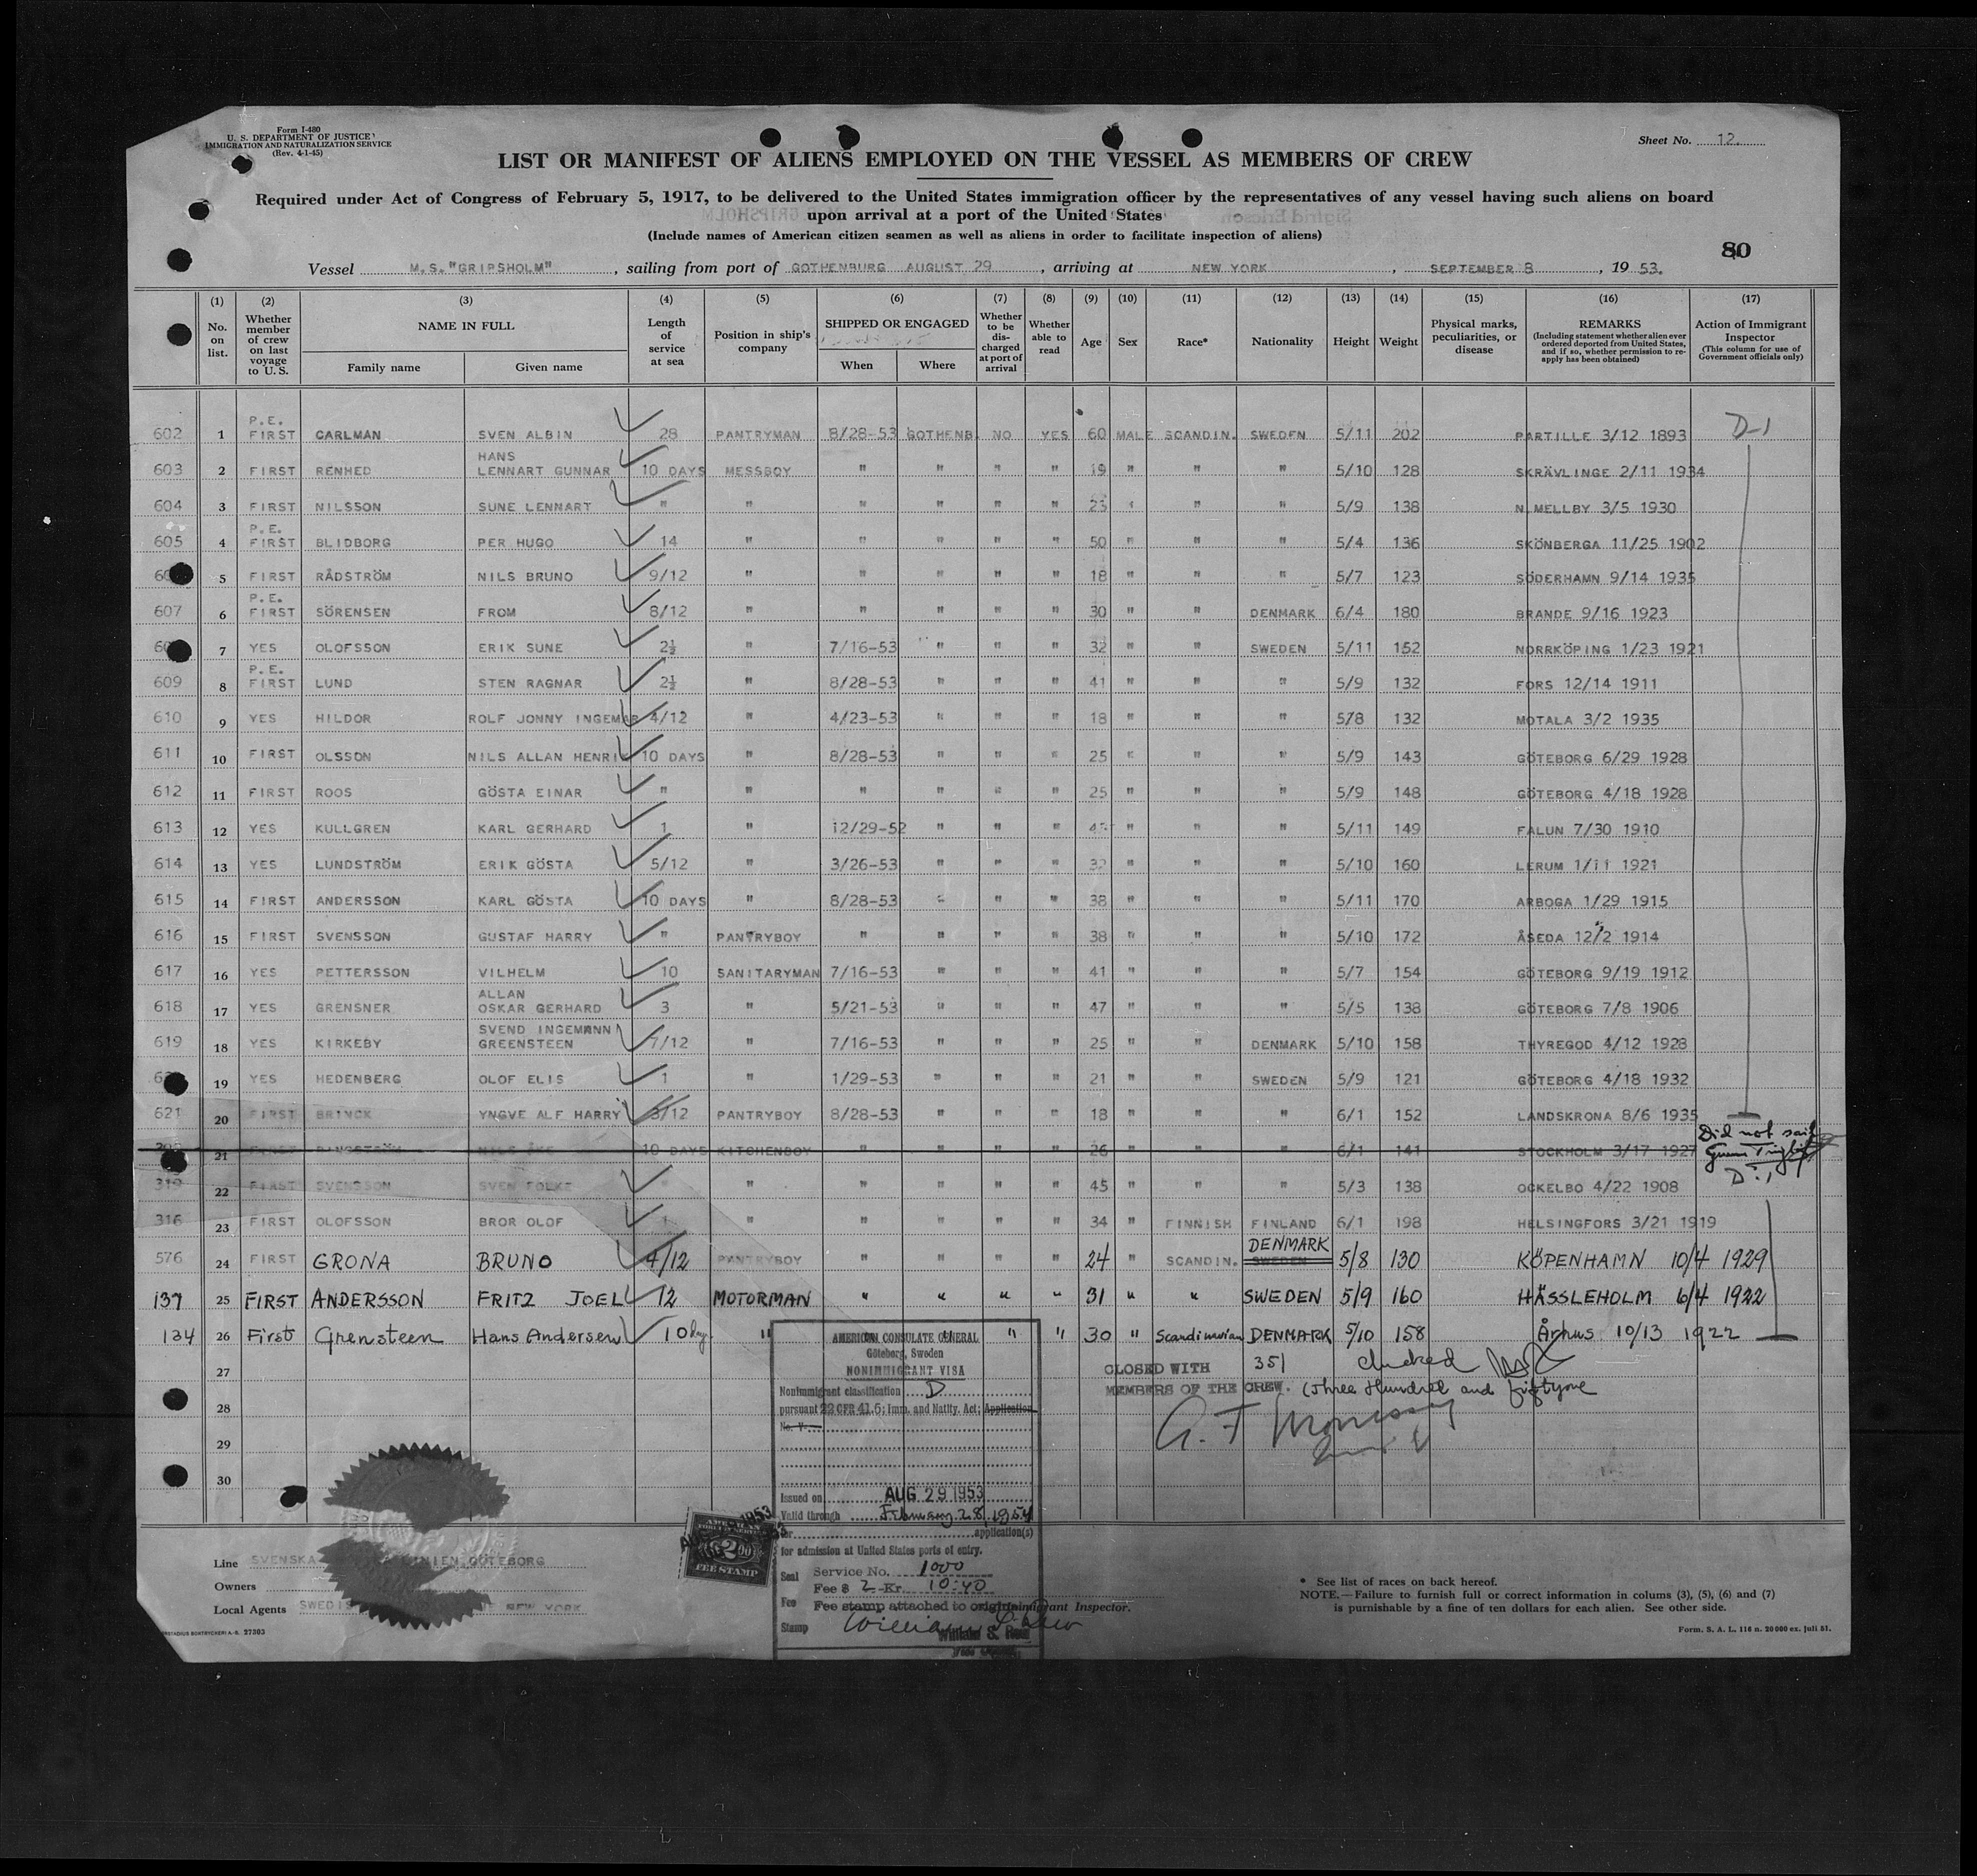 Form I-480
U. S. DEPARTMENT OF JUSTICE
IMMIGRATION AND NATURALIZATION SERVICE
(Rev. 4-1-45)
Sheet No. 12.
LIST OR MANIFEST OF ALIENS EMPLOYED ON THE VESSEL AS MEMBERS OF CREW
Required under Act of Congress of February 5, 1917, to be delivered to the United States immigration officer by the representatives of any vessel having such aliens on board
upon arrival at a port of the United States
(Include names of American citizen seamen as well as aliens in order to facilitate inspection of aliens)
80
Vessel M.S."GRIPSHOLM", sailing from port of GOTHENBURG AUGUST 29, arriving at NEW YORK, SEPTEMBER 8, 19 53.
(1) (2) (3) (4) (5) (6) (7) (8) (9) (10) (11) (12) (13) (14) (15) (16) (17)
No. on list.
Whether member of crew on last voyage to U. S.
NAME IN FULL
Family name Given name
Length of service at sea
Position in ship's company
SHIPPED OR ENGAGED
When Where
Whether to be discharged at port of arrival
Whether able to read
Age Sex Race* Nationality Height Weight
Physical marks, peculiarities, or disease
REMARKS
(Including statement whether alien ever ordered deported from United States, and if so, whether permission to reapply has been obtained)
Action of Immigrant Inspector
(This column for use of Government officials only)
602 1 P.E. FIRST CARLMAN SVEN ALBIN 28 PANTRYMAN 8/28-53 GOTHENB. NO YES 60 MALE SCANDIN. SWEDEN 5/11 202 PARTILLE 3/12 1893 D-1
603 2 FIRST RENHED HANS LENNART GUNNAR 10 DAYS MESSBOY " " " " 19 " " " 5/10 128 SKRÄVLINGE 2/11 1934
604 3 FIRST NILSSON SUNE LENNART " " " " " " 23 " " " 5/9 138 N.MELLBY 3/5 1930
605 4 P.E. FIRST BLIDBORG PER HUGO 14 " " " " " 50 " " " 5/4 136 SKÖNBERGA 11/25 1902
5 FIRST RÅDSTRÖM NILS BRUNO 9/12 " " " " " 18 " " " 5/7 123 SÖDERHAMN 9/14 1935
607 6 P.E. FIRST SÖRENSEN FROM 8/12 " " " " " 30 " " DENMARK 6/4 180 BRANDE 9/16 1923
7 YES OLOFSSON ERIK SUNE 2½ " 7/16-53 " " " 32 " " SWEDEN 5/11 152 NORRKÖPING 1/23 1921
609 8 P.E. FIRST LUND STEN RAGNAR 2½ " 8/28-53 " " " 41 " " " 5/9 132 FORS 12/14 1911
610 9 YES HILDOR ROLF JONNY INGEMAR 4/12 " 4/23-53 " " " 18 " " " 5/8 132 MOTALA 3/2 1935
611 10 FIRST OLSSON NILS ALLAN HENRI 10 DAYS " 8/28-53 " " " 25 " " " 5/9 143 GÖTEBORG 6/29 1928
612 11 FIRST ROOS GÖSTA EINAR " " " " " " 25 " " " 5/9 148 GÖTEBORG 4/18 1928
613 12 YES KULLGREN KARL GERHARD 1 " 12/29-52 " " " " " " 5/11 149 FALUN 7/30 1910
614 13 YES LUNDSTRÖM ERIK GÖSTA 5/12 " 3/26-53 " " " 32 " " " 5/10 160 LERUM 1/11 1921
615 14 FIRST ANDERSSON KARL GÖSTA 10 DAYS " 8/28-53 " " " 38 " " " 5/11 170 ARBOGA 1/29 1915
616 15 FIRST SVENSSON GUSTAF HARRY " PANTRYBOY " " " " 38 " " " 5/10 172 ÅSEDA 12/2 1914
617 16 YES PETTERSSON VILHELM 10 SANITARYMAN 7/16-53 " " " 41 " " " 5/7 154 GÖTEBORG 9/19 1912
618 17 YES GRENSNER ALLAN OSKAR GERHARD 3 " 5/21-53 " " " 47 " " " 5/5 138 GÖTEBORG 7/8 1906
619 18 YES KIRKEBY SVEND INGEMANN GREENSTEEN 7/12 " 7/16-53 " " " 25 " " DENMARK 5/10 158 THYREGOD 4/12 1928
19 YES HEDENBERG OLOF ELIS 1 " 1/29-53 " " " 21 " " SWEDEN 5/9 121 GÖTEBORG 4/18 1932
621 20 FIRST BRINCK YNGVE ALF HARRY 3/12 PANTRYBOY 8/28-53 " " " 18 " " " 6/1 152 LANDSKRONA 8/6 1935
21 FIRST NILS ÅKE 10 DAYS KITCHENBOY " " " " 26 " " " 6/1 141 STOCKHOLM 3/17 1927 Did not sail
D-1
319 22 FIRST SVENSSON SVEN FOLKE " " " " " " 45 " " " 5/3 138 OCKELBO 4/22 1908
316 23 FIRST OLOFSSON BROR OLOF " " " " " 34 " FINNISH FINLAND 6/1 198 HELSINGFORS 3/21 1919
576 24 FIRST GRONA BRUNO 4/12 PANTRYBOY " " " " 24 " SCANDIN. DENMARK SWEDEN 5/8 130 KÖPENHAMN 10/4 1929
137 25 FIRST ANDERSSON FRITZ JOEL 12 MOTORMAN " " " " 31 " " SWEDEN 5/9 160 HÄSSLEHOLM 6/4 1922
134 26 First Grensteen Hans Andersen 10 day " " " " 30 " Scandinavian DENMARK 5/10 158 Århus 10/13 1922
27
28
29
30
CLOSED WITH 351 checked
MEMBERS OF THE CREW. (Three Hundred and fiftyone
AMERICAN CONSULATE GENERAL
Göteborg, Sweden
NONIMMIGRANT VISA
Nonimmigrant classification D
pursuant 22 CFR 41.6; Imm. and Natlty. Act; Application
No. V-
Issued on AUG 29 1953
Valid through February 28, 1954
for application(s)
for admission at United States ports of entry.
Seal Service No. 1000
Fee $ 2 -Kr. 10:40
Fee Fee stamp attached to original Immigrant Inspector.
Stamp
AMERICAN
FOREIGN SERVICE
$2.00
FEE STAMP
Line SVENSKA LINIEN, GÖTEBORG
Owners
Local Agents NEW YORK
27503
* See list of races on back hereof.
NOTE.—Failure to furnish full or correct information in colums (3), (5), (6) and (7)
is punishable by a fine of ten dollars for each alien. See other side.
Form. S. A. L. 116 n. 20 000 ex. juli 51.